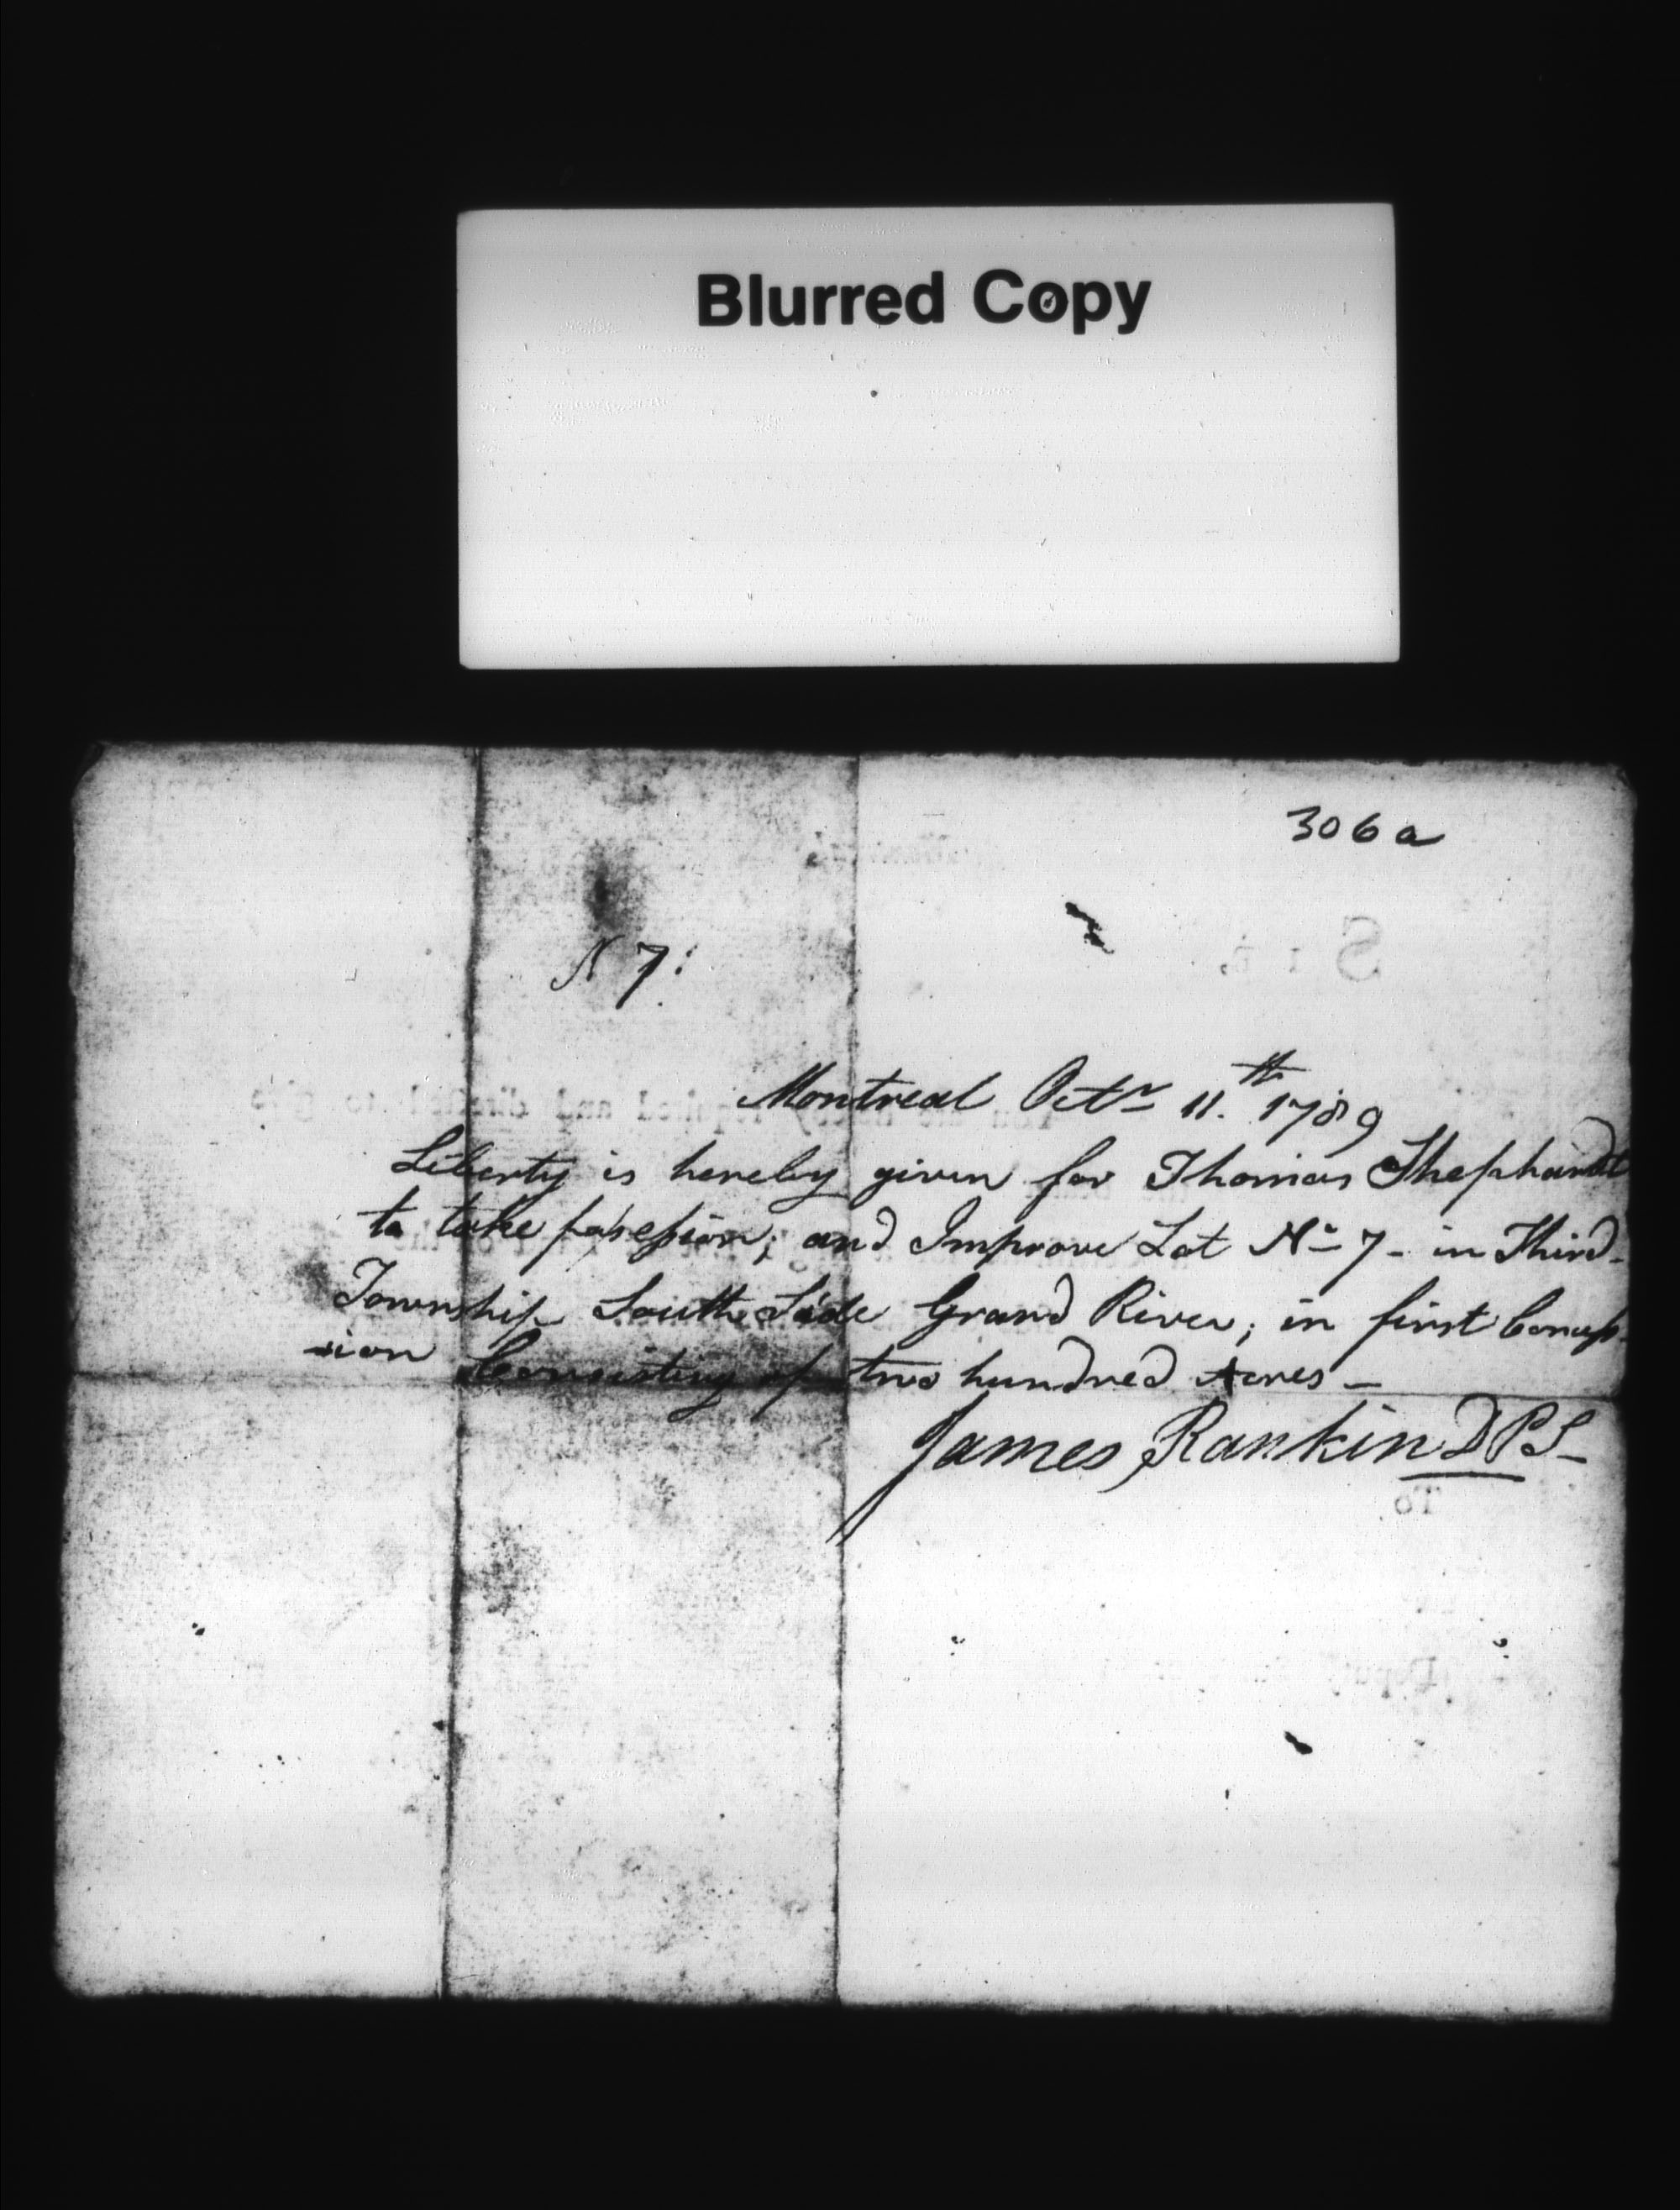 Blurred Copy
306a
N 7:
Montreal Octr 11.th 1789
Liberty is hereby given for Thomas Shephard
to take possession; and Improve Lot No 7 - in Third
Township South Side Grand River; in first Concess-
-ion Consisting of two hundred Acres -
James Rankin DPS -